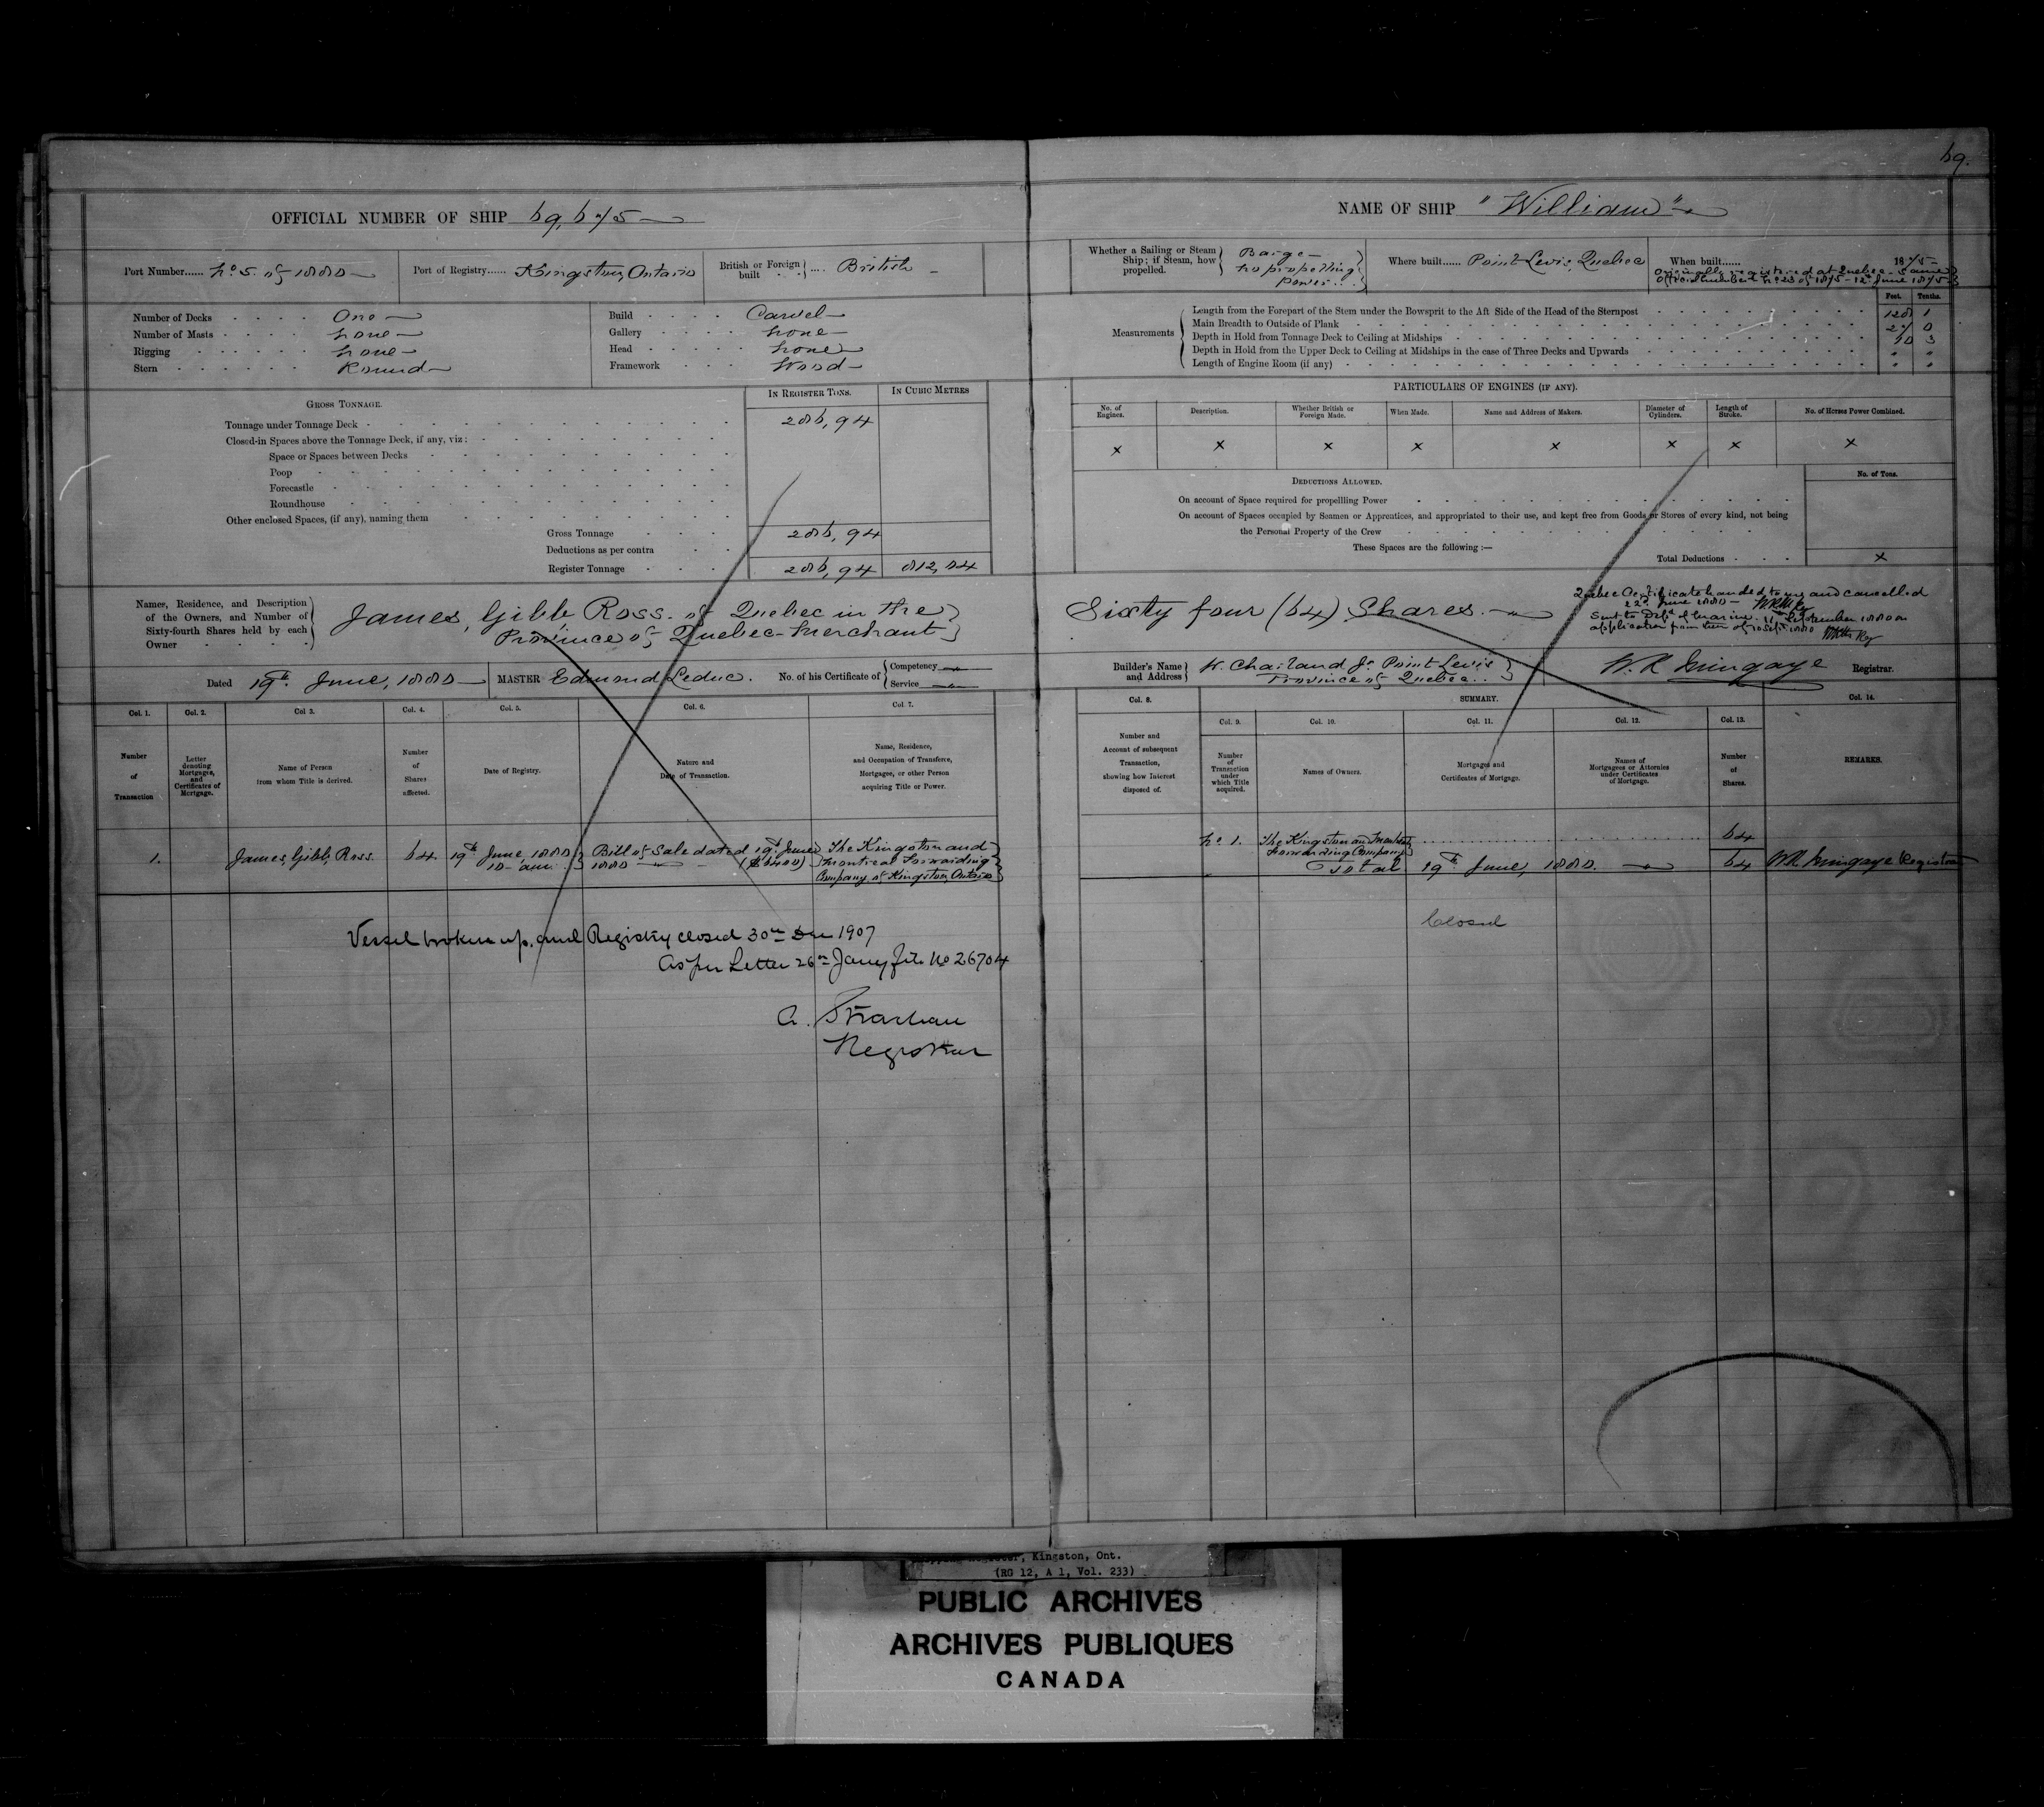 69.
OFFICIAL NUMBER OF SHIP 69,675
NAME OF SHIP "William"
Port Number...... No. 5 of 1880
Port of Registry...... Kingston, Ontario
British or Foreign built .... British
Whether a Sailing or Steam Ship; if Steam, how propelled. Barge - no propelling power.
Where built...... Point Levis, Quebec
When built...... 1875
Originally registered at Quebec - same
Official number No. 23 of 1875 - 12th June 1875
Number of Decks One
Number of Masts None
Rigging None
Stern Round
Build Carvel
Gallery None
Head None
Framework Wood
Measurements
Feet. Tenths.
Length from the Forepart of the Stem under the Bowsprit to the Aft Side of the Head of the Sternpost 128 1
Main Breadth to Outside of Plank 27 0
Depth in Hold from Tonnage Deck to Ceiling at Midships 10 3
Depth in Hold from the Upper Deck to Ceiling at Midships in the case of Three Decks and Upwards " "
Length of Engine Room (if any) " "
GROSS TONNAGE.
IN REGISTER TONS. IN CUBIC METRES
Tonnage under Tonnage Deck 286,94
Closed-in Spaces above the Tonnage Deck, if any, viz:
Space or Spaces between Decks
Poop
Forecastle
Roundhouse
Other enclosed Spaces, (if any), naming them
Gross Tonnage 286,94
Deductions as per contra
Register Tonnage 286,94 812,04
PARTICULARS OF ENGINES (IF ANY).
No. of Engines. Description. Whether British or Foreign Made. When Made. Name and Address of Makers. Diameter of Cylinders. Length of Stroke. No. of Horses Power Combined.
x x x x x x x x
DEDUCTIONS ALLOWED. No. of Tons.
On account of Space required for propelling Power
On account of Spaces occupied by Seamen or Apprentices, and appropriated to their use, and kept free from Goods or Stores of every kind, not being
the Personal Property of the Crew
These Spaces are the following :—
Total Deductions x
Names, Residence, and Description of the Owners, and Number of Sixty-fourth Shares held by each Owner
James, Gibb Ross. of Quebec in the
Province of Quebec - Merchant
Sixty four (64) Shares.
Quebec Certificate handed to me and cancelled
22d June 1880
Sent to Dept of Marine. 11 September 1880 on
application from them of 10 Sept. 1880
Dated 19th June, 1880
MASTER Edmond Leduc.
No. of his Certificate of Competency Service
Builder's Name and Address W. Charland Jr. Point Levis
Province of Quebec.
W. R. Mingaye Registrar.
Col. 1. Col. 2. Col 3. Col. 4. Col. 5. Col. 6. Col. 7.
Number of Transaction
Letter denoting Mortgages, and Certificates of Mortgage.
Name of Person from whom Title is derived.
Number of Shares affected.
Date of Registry.
Nature and Date of Transaction.
Name, Residence, and Occupation of Transferee, Mortgagee, or other Person acquiring Title or Power.
Col. 8. SUMMARY. Col. 14.
Col. 9. Col. 10. Col. 11. Col. 12. Col. 13.
Number and Account of subsequent Transaction, showing how Interest disposed of.
Number of Transaction under which Title acquired.
Names of Owners.
Mortgages and Certificates of Mortgage.
Names of Mortgagees or Attornies under Certificates of Mortgage.
Number of Shares.
REMARKS.
1. James, Gibb, Ross. 64 19th June, 1880 10 am. Bill of Sale dated 19th June 1880 The Kingston and Montreal Forwarding Company of Kingston, Ontario
No. 1. The Kingston and Montreal Forwarding Company 64
Total 19th June, 1880. 64 WR Mingaye Registrar
Closed
Vessel broken up, and Registry closed 30th Dec 1907
As per Letter 26th Jany file No 26704
A. Strachan
Registrar
Shipping Register, Kingston, Ont.
(RG 12, A 1, Vol. 233)
PUBLIC ARCHIVES
ARCHIVES PUBLIQUES
CANADA